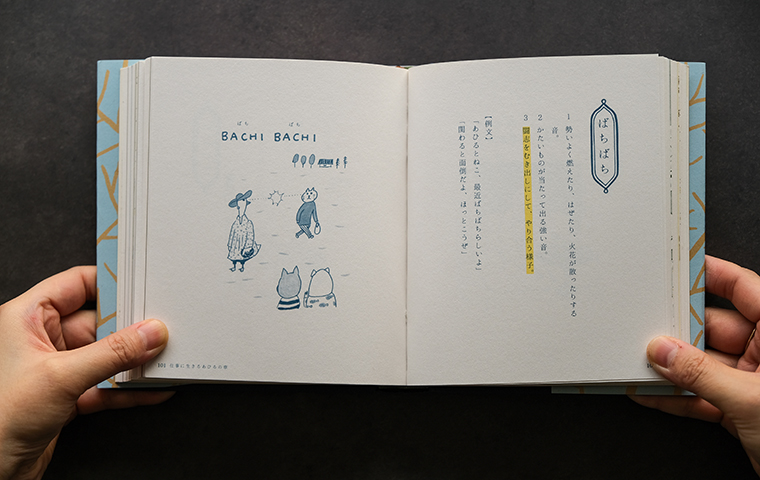 ばち ばち
BACHI BACHI
ばちばち
1 勢いよく燃えたり、はぜたり、火花が散ったりする
音。
2 かたいものが当たって出る強い音。
3 闘志をむき出しにして、やり合う様子。
【例文】
「あひるとねこ、最近ばちばちらしいよ」
「関わると面倒だよ、ほっとこうぜ」